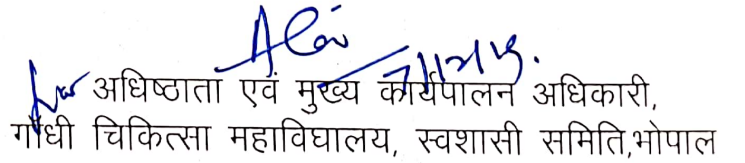 अधिष्ठाता एवं मुख्य कार्यपालन अधिकारी,
गाँधी चिकित्सा महाविघालय, स्वशासी समिति,भोपाल